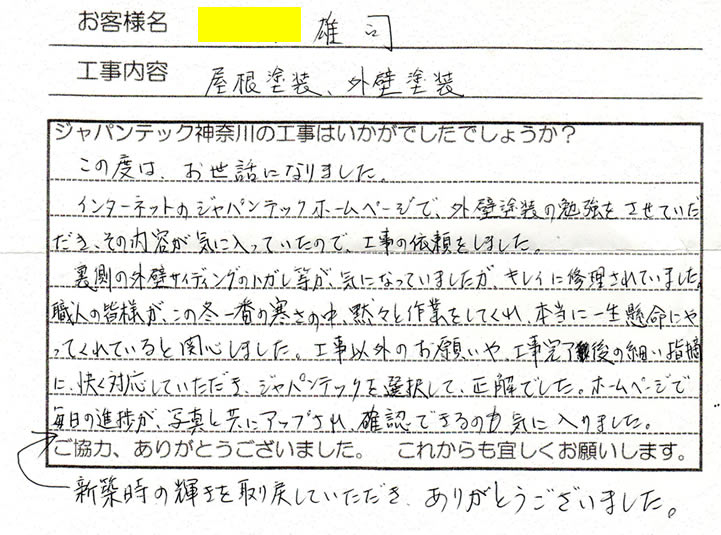 お客様名 雄司
工事内容 屋根塗装、外壁塗装
ジャパンテック神奈川の工事はいかがでしたでしょうか？
この度は、お世話になりました。
インターネットのジャパンテックホームページで、外壁塗装の勉強をさせていた
だき、その内容が気に入っていたので、工事の依頼をしました。
裏側の外壁サイディングのハガレ等が、気になっていましたが、キレイに修理されていました。
職人の皆様が、この冬一番の寒さの中、黙々と作業をしてくれ、本当に一生懸命にや
ってくれていると関心しました。工事以外のお願いや、工事完了後の細い指摘
に、快く対応していただき、ジャパンテックを選択して、正解でした。ホームページで
毎日の進捗が、写真と共にアップされ、確認できるのも気に入りました。
ご協力、ありがとうございました。 これからも宜しくお願いします。
新築時の輝きを取り戻していただき、ありがとうございました。